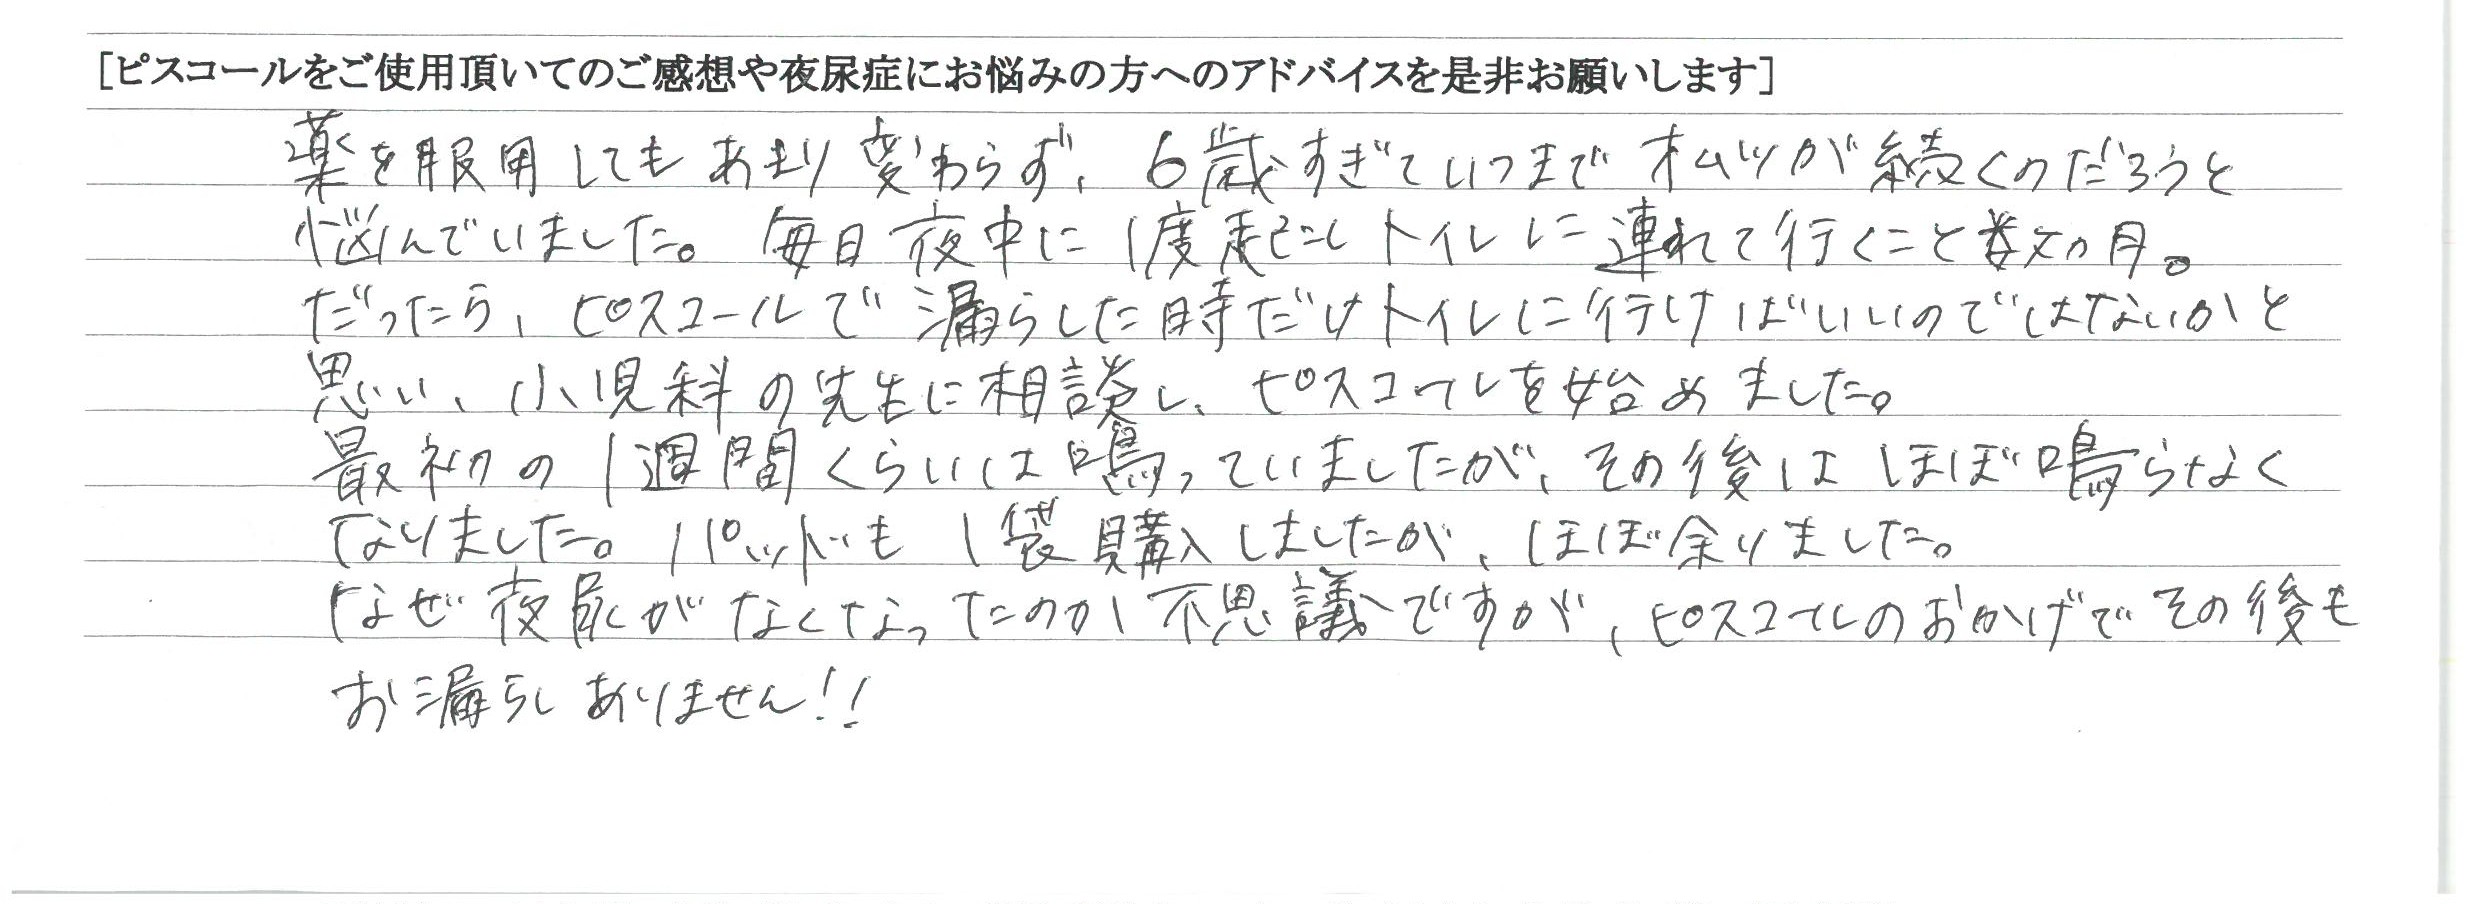 [ピスコールをご使用頂いてのご感想や夜尿症にお悩みの方へのアドバイスを是非お願いします]
薬を服用してもあまり変わらず、6歳すぎていつまでオムツが続くのだろうと
悩んでいました。毎日夜中に1度起こしトイレに連れて行くこと数カ月。
だったら、ピスコールで漏らした時だけトイレに行けばいいのではないかと
思い、小児科の先生に相談し、ピスコールを始めました。
最初の1週間くらいは鳴っていましたが、その後はほぼ鳴らなく
なりました。パットも1袋購入しましたが、ほぼ余りました。
なぜ夜尿がなくなったのか不思議ですが、ピスコールのおかげでその後も
お漏らしありません!!